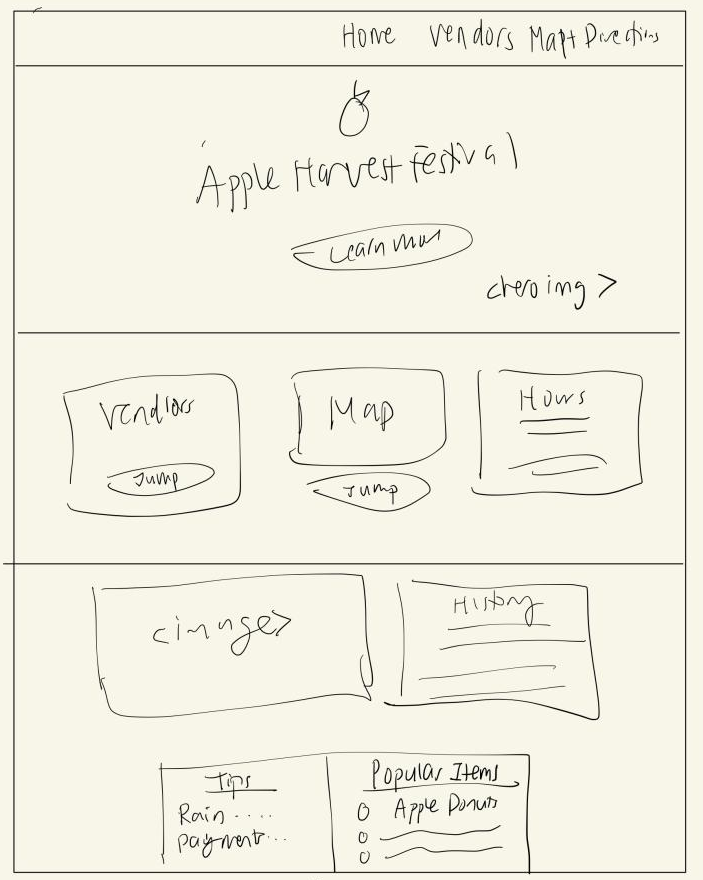 Home Vendors Map + Directions
Apple Harvest Festival
Learn more
<hero img>
Vendors
Jump
Map
Jump
Hours
<image>
History
Tips
Rain ....
Payment...
Popular Items
Apple Donuts